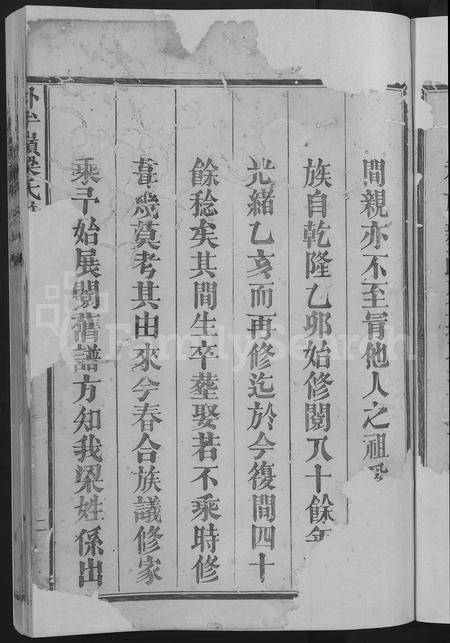 間親亦不至冐他人之祖
族自乾隆乙卯始修閱八十餘年
光緒乙亥而再修迄於今復間四十
餘稔矣其間生卒塟娶若不乘時修
葺幾莫考其由來今春合族議修家
乘予始展閱舊譜方知我梁姓係出
卧牛嶺梁氏
二
FamilySearch